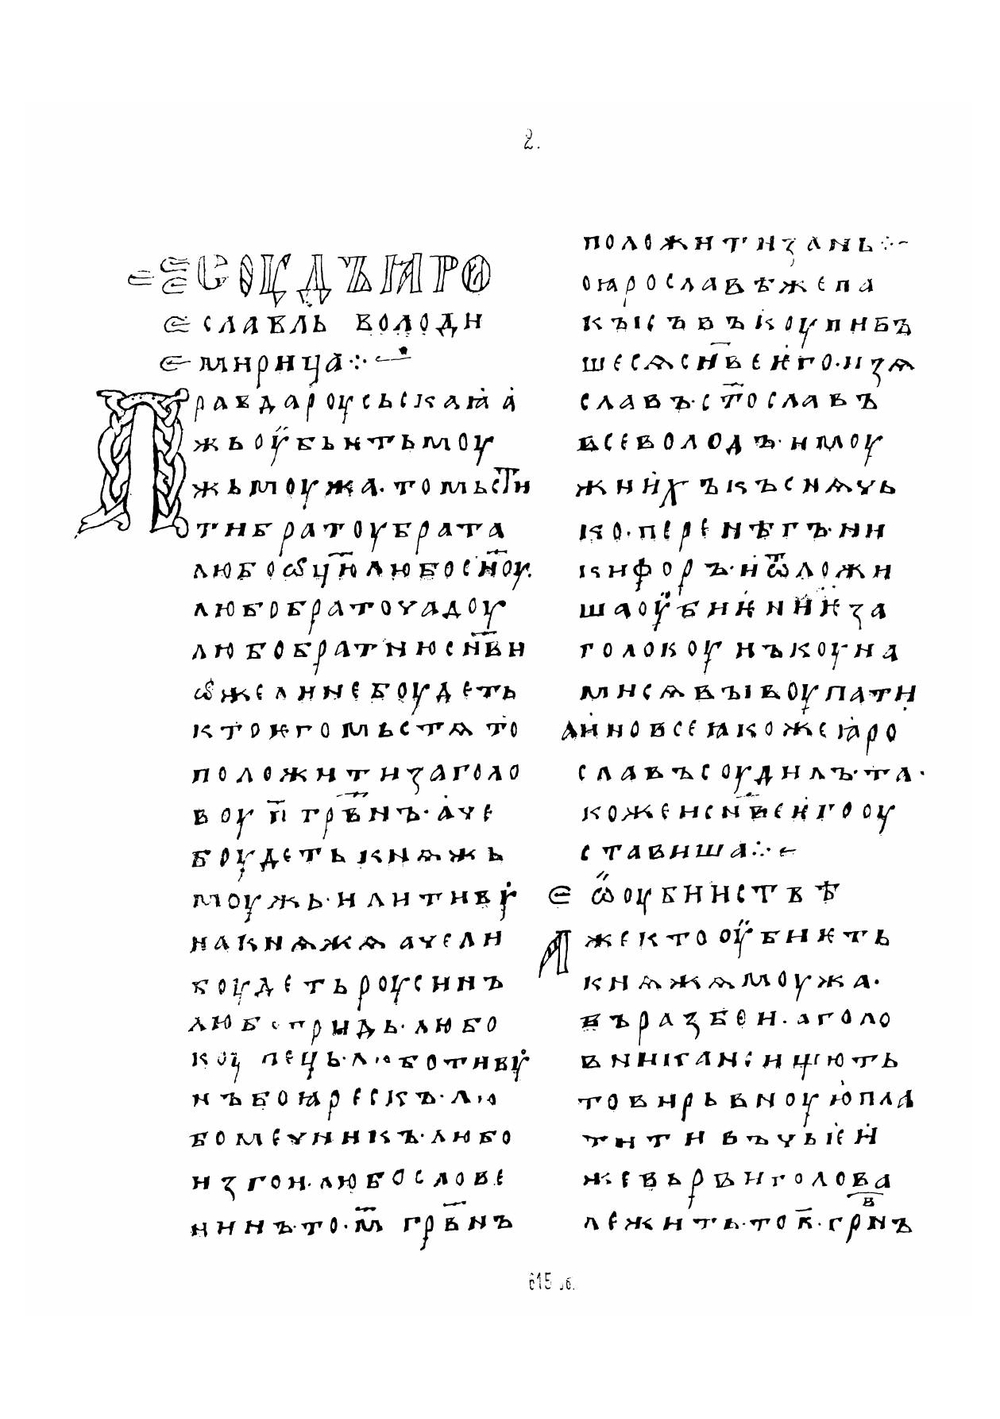 2.
СОУДЪ ꙖРО
СЛАВЛЬ ВОЛОДИ
МИРИЦА ⁘
ПРАВДА РОУСЬСКАꙖ А
ЖЬ ОУБЬѤТЬ МОУ
ЖЬ МОУЖА · ТО МЬСТИ
ТИ БРАТОУ БРАТА
ЛЮБО ѾЦЮ ЛЮБО СН҃ОУ
ЛЮБО БРАТОУЧАДОУ
ЛЮБО БРАТНЮ СН҃ВИ
ѠЖЕ ЛИ НЕ БОУДЕТЬ
КТО ѤГО МЬСТѦ ТО
ПОЛОЖИТИ ЗА ГОЛО
ВОУ П҃ ГРВ҃НЪ · АЧЕ
БОУДЕТЬ КНѦЖЬ
МОУЖЬ · ИЛИ ТИВꙊ
НА КНѦЖѦ АЧЕ ЛИ
БОУДЕТЬ РОУСИНЪ
ЛЮБО ГРИДЬ · ЛЮБО
КОУПЕЦЬ · ЛЮБО ТИВꙊ
НЪ БОꙖРЕСКЪ · ЛЮ
БО МЕЧНИКЪ · ЛЮБО
ИЗГОИ · ЛЮБО СЛОВЕ
НИНЪ · ТО · М҃ ГРВ҃НЪ
ПОЛОЖИТИ ЗА НЬ ⁘
О ꙖРОСЛАВѢ ЖЕ ПА
КЫ СЪВЪКОУПИВЪ
ШЕСѦ СН҃ВЕ ѤГО · ИЗѦ
СЛАВЪ · СТ҃ОСЛАВЪ
ВСЕВОЛОДЪ · И МОУ
ЖИ ИХЪ КЪСНѦЧЬ
КО · ПЕРЕНѢГЪ · НИ
КИФОРЪ · И ѾЛОЖИ
ША ОУБИѤНИѤ ЗА
ГОЛОВОУ НЪ КОУНА
МИ СѦ ВЫВОУПАТИ
А ИНО ВСЕ ꙖКОЖЕ ꙖРО
СЛАВЪ СОУДИЛЪ · ТА ·
КОЖЕ И СН҃ВЕ ѤГО ОУ
СТАВИША ⁘
Ѡ ОУБИИСТВѢ
АЖЕ КТО ОУБИѤТЬ
КНѦЖѦ МОУЖА ·
ВЪ РАЗБЕИ · А ГОЛО
ВНИКА НЕ ИЩЮТЬ
ТО ВИРЬВНОУЮ ПЛА
ТИТИ ВЪ ЧЬѤИ
ЖЕ ВЬРВИ ГОЛОВА
ЛЕЖИТЬ · ТО П҃ · ГРВ҃НЪ
615 об.